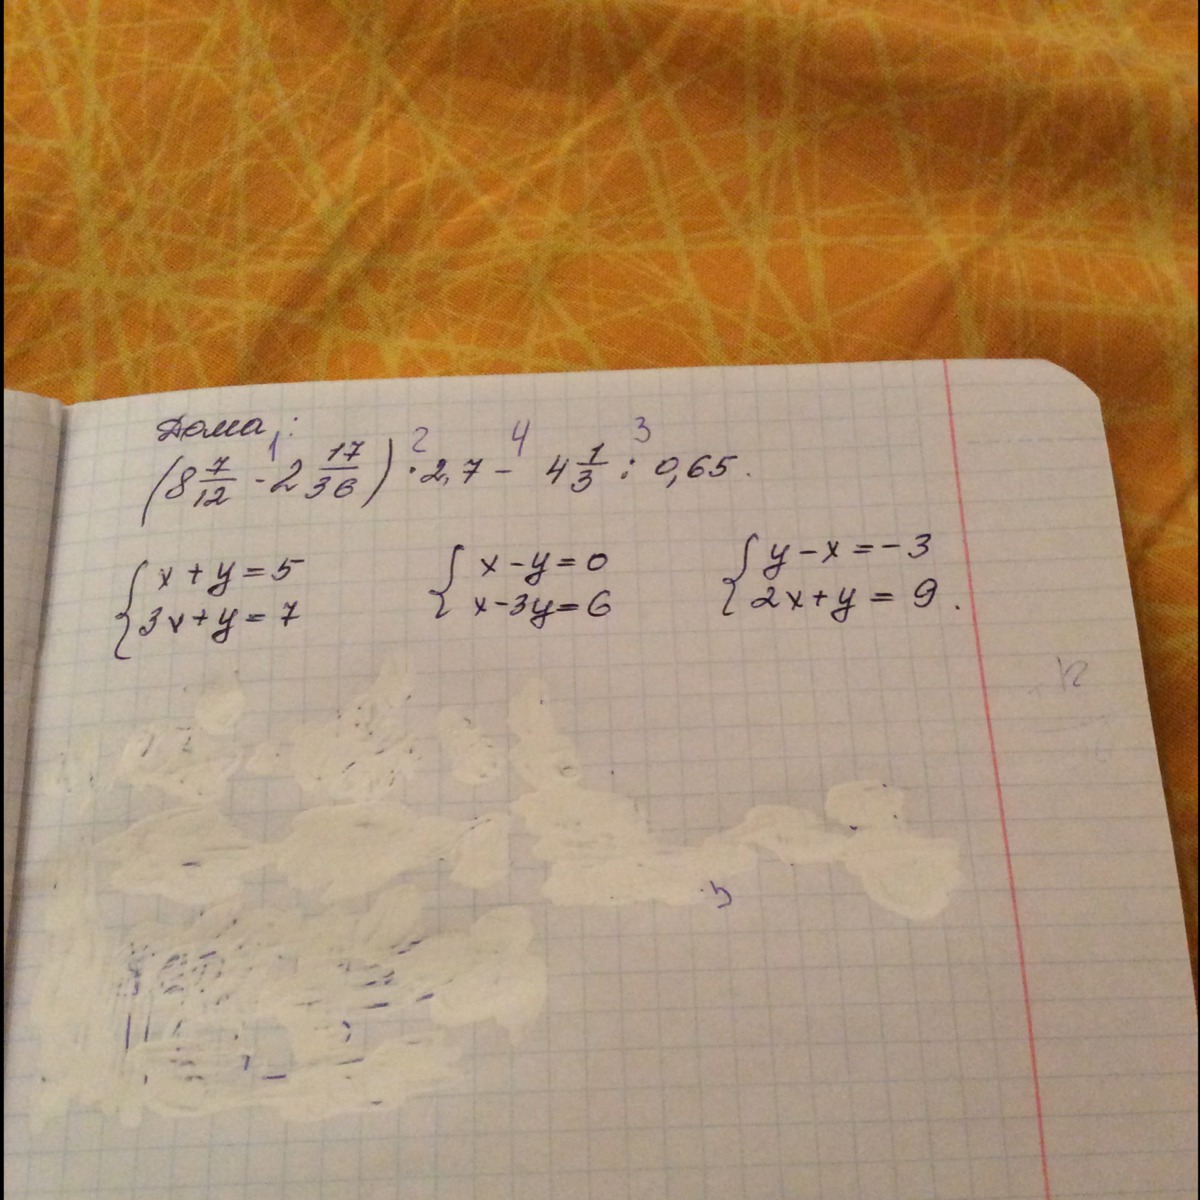 Дома:
1 2 4 3
(8 7/12 - 2 17/36) · 2,7 - 4 1/3 : 0,65.
{ x + y = 5 { x - y = 0 { y - x = -3
{ 3x + y = 7 { x - 3y = 6 { 2x + y = 9.